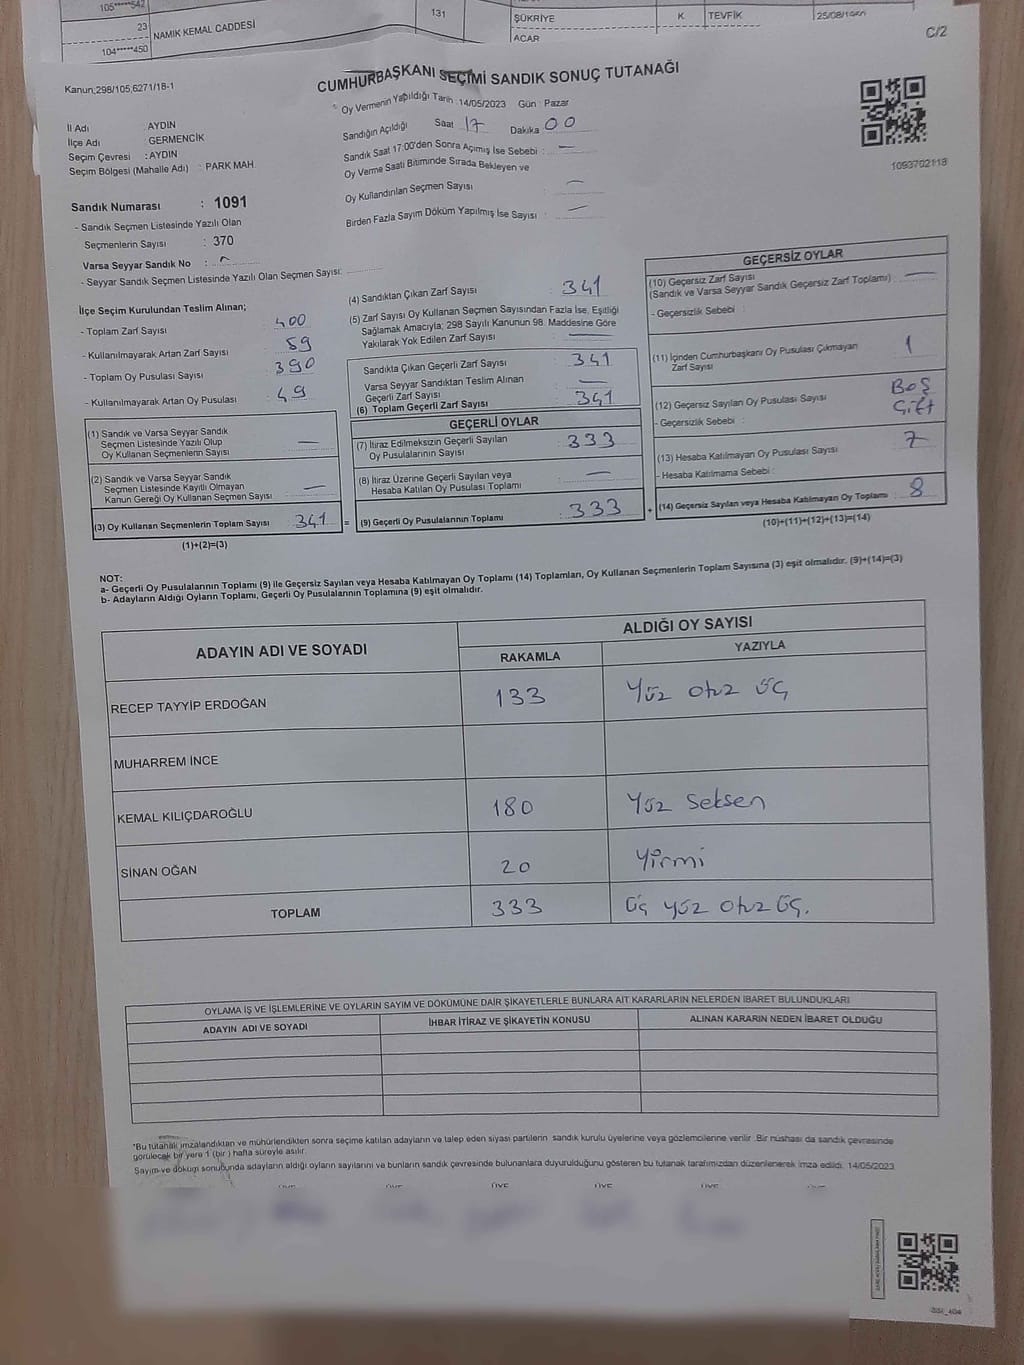 105*****542
23
NAMIK KEMAL CADDESİ
104*****450
131
ŞÜKRİYE
K
TEVFİK
25/08/19
ACAR
C/2
Kanun,298/105,6271/18-1
CUMHURBAŞKANI SEÇİMİ SANDIK SONUÇ TUTANAĞI
Oy Vermenin Yapıldığı Tarih :14/05/2023 Gün : Pazar
İl Adı : AYDIN
İlçe Adı : GERMENCİK
Seçim Çevresi : AYDIN
Seçim Bölgesi (Mahalle Adı) : PARK MAH
Sandığın Açıldığı Saat 17 Dakika 00
Sandık Saat 17:00'den Sonra Açımış İse Sebebi : —
Oy Verme Saati Bitiminde Sırada Bekleyen ve
Oy Kullandırılan Seçmen Sayısı : —
Birden Fazla Sayım Döküm Yapılmış İse Sayısı : —
1093702118
Sandık Numarası : 1091
- Sandık Seçmen Listesinde Yazılı Olan
Seçmenlerin Sayısı : 370
Varsa Seyyar Sandık No :
- Seyyar Sandık Seçmen Listesinde Yazılı Olan Seçmen Sayısı:
İlçe Seçim Kurulundan Teslim Alınan;
- Toplam Zarf Sayısı : 400
- Kullanılmayarak Artan Zarf Sayısı : 59
- Toplam Oy Pusulası Sayısı : 390
- Kullanılmayarak Artan Oy Pusulası : 49
(1) Sandık ve Varsa Seyyar Sandık
Seçmen Listesinde Yazılı Olup
Oy Kullanan Seçmenlerin Sayısı : —
(2) Sandık ve Varsa Seyyar Sandık
Seçmen Listesinde Kayıtlı Olmayan
Kanun Gereği Oy Kullanan Seçmen Sayısı : —
(3) Oy Kullanan Seçmenlerin Toplam Sayısı : 341 =
(1)+(2)=(3)
(4) Sandıktan Çıkan Zarf Sayısı : 341
(5) Zarf Sayısı Oy Kullanan Seçmen Sayısından Fazla İse, Eşitliği
Sağlamak Amacıyla; 298 Sayılı Kanunun 98. Maddesine Göre
Yakılarak Yok Edilen Zarf Sayısı : —
Sandıkta Çıkan Geçerli Zarf Sayısı : 341
Varsa Seyyar Sandıktan Teslim Alınan
Geçerli Zarf Sayısı : —
(6) Toplam Geçerli Zarf Sayısı : 341
GEÇERLİ OYLAR
(7) İtiraz Edilmeksizin Geçerli Sayılan
Oy Pusulalarının Sayısı : 333
(8) İtiraz Üzerine Geçerli Sayılan veya
Hesaba Katılan Oy Pusulası Toplamı : —
(9) Geçerli Oy Pusulalarının Toplamı : 333 +
GEÇERSİZ OYLAR
(10) Geçersiz Zarf Sayısı
(Sandık ve Varsa Seyyar Sandık Geçersiz Zarf Toplamı) : —
- Geçersizlik Sebebi :
(11) İçinden Cumhurbaşkanı Oy Pusulası Çıkmayan
Zarf Sayısı : 1
(12) Geçersiz Sayılan Oy Pusulası Sayısı : Boş
- Geçersizlik Sebebi : Çift
(13) Hesaba Katılmayan Oy Pusulası Sayısı : 7
- Hesaba Katılmama Sebebi :
(14) Geçersiz Sayılan veya Hesaba Katılmayan Oy Toplamı : 8
(10)+(11)+(12)+(13)=(14)
NOT:
a- Geçerli Oy Pusulalarının Toplamı (9) ile Geçersiz Sayılan veya Hesaba Katılmayan Oy Toplamı (14) Toplamları, Oy Kullanan Seçmenlerin Toplam Sayısına (3) eşit olmalıdır. (9)+(14)=(3)
b- Adayların Aldığı Oyların Toplamı, Geçerli Oy Pusulalarının Toplamına (9) eşit olmalıdır.
ADAYIN ADI VE SOYADI
ALDIĞI OY SAYISI
RAKAMLA YAZIYLA
RECEP TAYYİP ERDOĞAN 133 Yüz otuz üç
MUHARREM İNCE
KEMAL KILIÇDAROĞLU 180 Yüz Seksen
SİNAN OĞAN 20 Yirmi
TOPLAM 333 Üç yüz otuz üç.
OYLAMA İŞ VE İŞLEMLERİNE VE OYLARIN SAYIM VE DÖKÜMÜNE DAİR ŞİKAYETLERLE BUNLARA AİT KARARLARIN NELERDEN İBARET BULUNDUKLARI
ADAYIN ADI VE SOYADI İHBAR İTİRAZ VE ŞİKAYETİN KONUSU ALINAN KARARIN NEDEN İBARET OLDUĞU
*Bu tutanak imzalandıktan ve mühürlendikten sonra seçime katılan adayların ve talep eden siyasi partilerin sandık kurulu üyelerine veya gözlemcilerine verilir .Bir nüshası da sandık çevresinde
görülecek bir yere 1 (bir ) hafta süreyle asılır.
Sayım ve döküm sonucunda adayların aldığı oyların sayılarını ve bunların sandık çevresinde bulunanlara duyurulduğunu gösteren bu tutanak tarafımızdan düzenlenerek imza edildi. 14/05/2023
ÜYE ÜYE ÜYE ÜYE ÜYE ÜYE